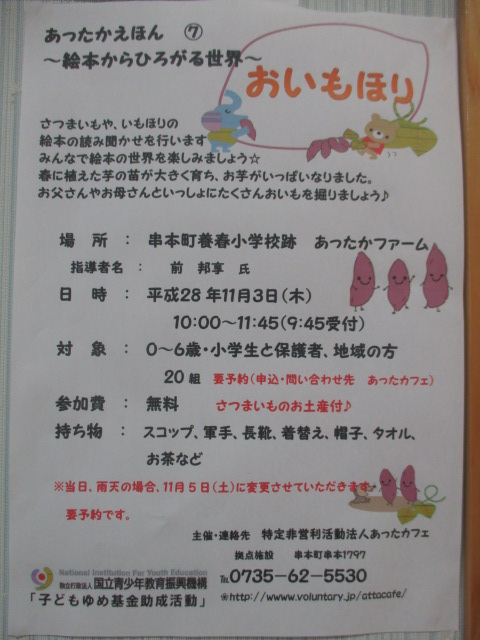 あったかえほん ⑦
～絵本からひろがる世界～
おいもほり
さつまいもや、いもほりの
絵本の読み聞かせを行います
みんなで絵本の世界を楽しみましょう☆
春に植えた芋の苗が大きく育ち、お芋がいっぱいなりました。
お父さんやお母さんといっしょにたくさんおいもを掘りましょう♪
場 所 : 串本町養春小学校跡 あったかファーム
指導者名 : 前 邦享 氏
日 時 : 平成28年11月3日(木)
10:00～11:45(9:45受付)
対 象 : 0～6歳・小学生と保護者、地域の方
20組 要予約(申込・問い合わせ先 あったカフェ)
参加費 : 無料 さつまいものお土産付♪
持ち物 : スコップ、軍手、長靴、着替え、帽子、タオル、
お茶など
※当日、雨天の場合、11月5日(土)に変更させていただきます。
要予約です。
主催・連絡先 特定非営利活動法人あったカフェ
拠点施設 串本町串本1797
National Institution For Youth Education
独立行政法人 国立青少年教育振興機構
℡0735-62-5530
「子どもゆめ基金助成活動」
❀http://www.voluntary.jp/attacafe/